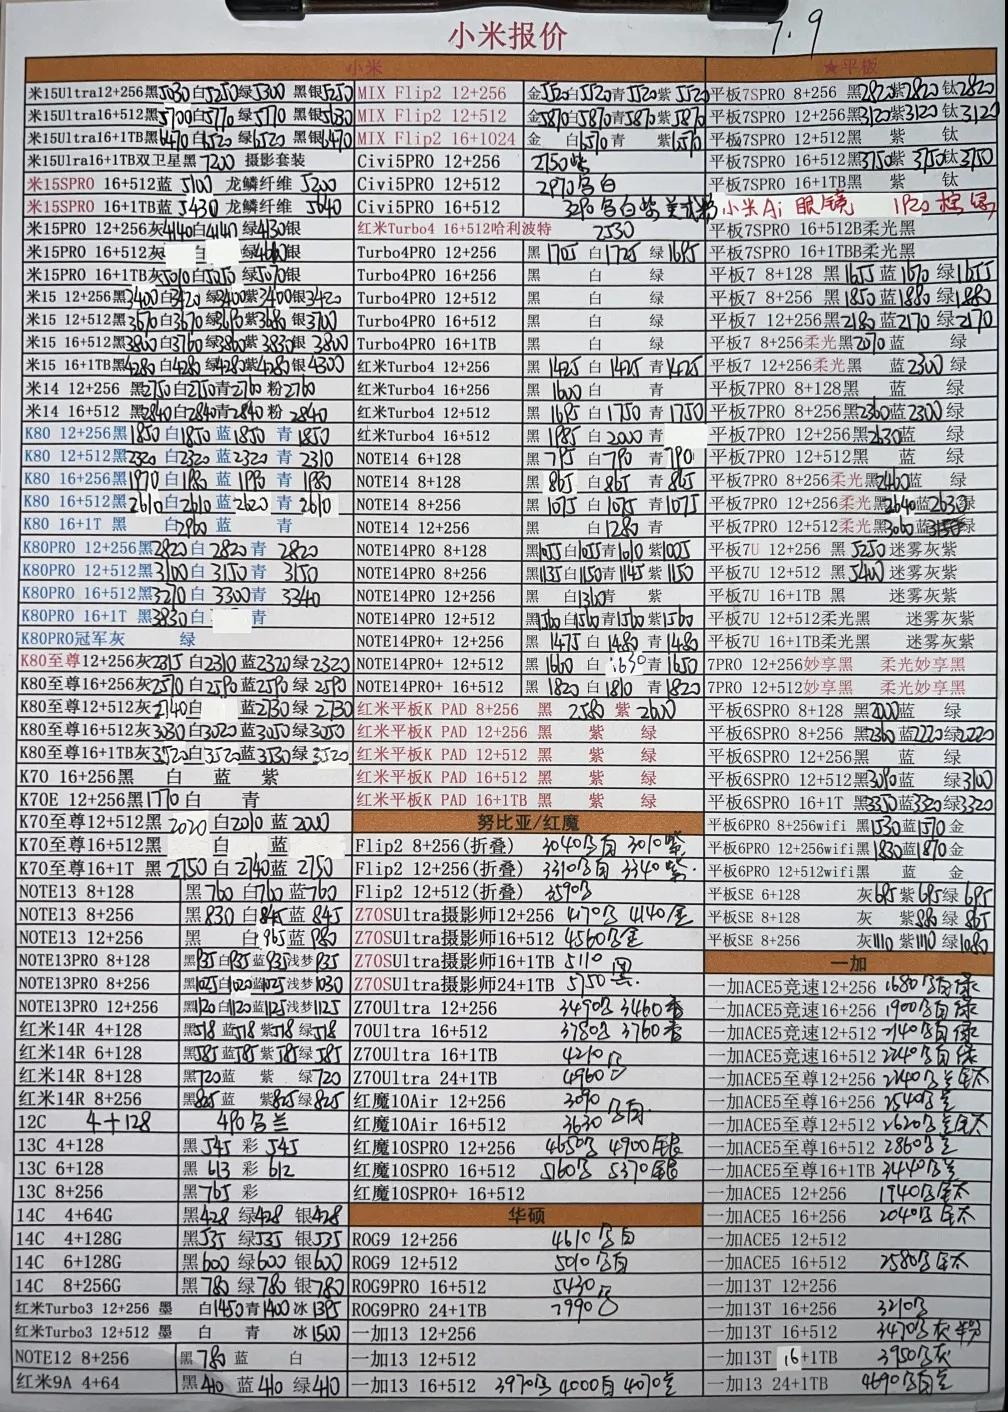 小米报价
7.9
小米
米15Ultra12+256黑5030白5250绿5300 黑银5250
米15Ultra16+512黑5700白5770绿5770黑银5630
米15Ultra16+1TB黑6470白6520绿6520黑银6470
米15Ulra16+1TB双卫星黑7200 摄影套装
米15SPRO 16+512蓝 5100 龙鳞纤维 5200
米15SPRO 16+1TB蓝 5430 龙鳞纤维 5640
米15PRO 12+256灰4140白4140 绿4130银
米15PRO 16+512灰 白 绿 银
米15PRO 16+1TB灰5010白5050 绿5070银
米15 12+256黑3400白3420 绿3400紫3400银3420
米15 12+512黑3670白3670绿3690紫3680 银3700
米15 16+512黑3800白3760绿3860紫3830银 3800
米15 16+1TB黑4280白4280绿4280紫4280银4300
米14 12+256 黑2750白2750青2760 粉2760
米14 16+512 黑2840白2840青2840粉 2840
K80 12+256黑1850 白1850 蓝1850 青 1850
K80 12+512黑2320 白2320 蓝2320 青 2310
K80 16+256黑1970 白1980 蓝1990 青 1980
K80 16+512黑2610 白2610 蓝2620 青 2610
K80 16+1T 黑 白2960 蓝 青
K80PRO 12+256黑2820 白 2820 青 2820
K80PRO 12+512黑3100 白 3150 青 3150
K80PRO 16+512黑3270 白 3300青 3340
K80PRO 16+1T 黑3830 白 青
K80PRO冠军灰 绿
K80至尊12+256灰2315 白2310 蓝2320 绿 2320
K80至尊16+256灰2570 白2590 蓝2590 绿 2590
K80至尊12+512灰2740白 蓝2730 绿 2730
K80至尊16+512灰3030 白3020 蓝3050 绿3050
K80至尊16+1TB灰3520白3520蓝3530绿 3520
K70 16+256黑 白 蓝 紫
K70E 12+256黑1770 白 青
K70至尊12+512黑 2020 白2010 蓝 2000
K70至尊16+512黑 白 蓝
K70至尊16+1T 黑 2750 白 2740蓝 2750
NOTE13 8+128 黑 760 白760 蓝760
NOTE13 8+256 黑 830 白845 蓝 845
NOTE13 12+256 黑 白965蓝 980
NOTE13PRO 8+128 黑935白935蓝935浅梦935
NOTE13PRO 8+256 黑1025白1020蓝1025浅梦1030
NOTE13PRO 12+256 黑1120白1120蓝1125浅梦1125
红米14R 4+128 黑518蓝518紫518绿518
红米14R 6+128 黑585蓝585紫585绿585
红米14R 8+128 黑720蓝 紫 绿720
红米14R 8+256 黑825蓝 紫825绿825
12C 4+128 490乌兰
13C 4+128 黑 545 彩 545
13C 6+128 黑 613 彩 612
13C 8+256 黑765 彩
14C 4+64G 黑428 绿428 银428
14C 4+128G 黑535 绿535 银535
14C 6+128G 黑600 绿600 银600
14C 8+256G 黑780 绿780 银780
红米Turbo3 12+256 墨 白1450青1400冰1395
红米Turbo3 12+512 墨 白 青 冰1500
NOTE12 8+256 黑780 蓝 白
红米9A 4+64 黑410 蓝410 绿410
MIX Flip2 12+256 金5520白5520青5520紫5520
MIX Flip2 12+512 金5870白5870青5870紫5870
MIX Flip2 16+1024 金 白6570青 紫6570
Civi5PRO 12+256 2750紫
Civi5PRO 12+512 2970乌白
Civi5PRO 16+512 3290乌白紫美式粉
红米Turbo4 16+512哈利波特 2530
Turbo4PRO 12+256 黑1705 白1725 绿1695
Turbo4PRO 16+256 黑 白 绿
Turbo4PRO 12+512 黑 白 绿
Turbo4PRO 16+512 黑 白 绿
Turbo4PRO 16+1TB 黑 白 绿
红米Turbo4 12+256 黑1425 白1425 青1425
红米Turbo4 16+256 黑1600 白 青
红米Turbo4 12+512 黑1695 白1750 青1750
红米Turbo4 16+512 黑1985 白2000 青
NOTE14 6+128 黑795 白790 青790
NOTE14 8+128 黑865 白865 青865
NOTE14 8+256 黑1075 白1075 青1075
NOTE14 12+256 黑 白1280 青
NOTE14PRO 8+128 黑1055白1055青1010 紫1005
NOTE14PRO 8+256 黑1135白1150青1145 紫1150
NOTE14PRO 12+256 黑 白1360青 紫
NOTE14PRO 12+512 黑1560白1560青1560 紫1560
NOTE14PRO+ 12+256 黑 1475 白1480 青1480
NOTE14PRO+ 12+512 黑 1660 白 1630 青1650
NOTE14PRO+ 16+512 黑 1820 白 1810 青1820
红米平板K PAD 8+256 黑 2580 紫 2600
红米平板K PAD 12+256 黑 紫 绿
红米平板K PAD 12+512 黑 紫 绿
红米平板K PAD 16+512 黑 紫 绿
红米平板K PAD 16+1TB 黑 紫 绿
努比亚/红魔
Flip2 8+256(折叠) 3040乌白 3010紫
Flip2 12+256(折叠) 3310乌白 3340紫
Flip2 12+512(折叠) 3590乌
Z70SUltra摄影师12+256 4170乌 4140金
Z70SUltra摄影师16+512 4560乌金
Z70SUltra摄影师16+1TB 5110
Z70SUltra摄影师24+1TB 5750 黑
Z70Ultra 12+256 3490乌 3460香
70Ultra 16+512 3780乌 3760香
Z70Ultra 16+1TB 4210乌
Z70Ultra 24+1TB 4960
红魔10Air 12+256 3090
红魔10Air 16+512 3630 乌白
红魔10SPRO 12+256 4650乌 4900银
红魔10SPRO 16+512 5160乌 5370银
红魔10SPRO+ 16+512
华硕
ROG9 12+256 4610乌白
ROG9 12+512 5010乌白
ROG9PRO 16+512 5430
ROG9PRO 24+1TB 7990乌
一加13 12+256
一加13 12+512
一加13 16+512 3970乌 4000白 4070蓝
★平板
平板7SPRO 8+256 黑2820紫2820 钛2820
平板7SPRO 12+256黑3120紫3120 钛3120
平板7SPRO 12+512黑 紫 钛
平板7SPRO 16+512黑3750紫 3750钛3750
平板7SPRO 16+1TB黑 紫 钛
小米Ai 眼镜 1920
平板7SPRO 16+512B柔光黑
平板7SPRO 16+1TBB柔光黑
平板7 8+128 黑1655 蓝1670 绿1655
平板7 8+256 黑1850 蓝1880 绿1880
平板7 12+256黑2180蓝2170 绿2170
平板7 8+256柔光黑2070 蓝 绿
平板7 12+256柔光黑 蓝2300 绿
平板7PRO 8+128黑 蓝 绿
平板7PRO 8+256黑2360蓝2300 绿
平板7PRO 12+256黑2630蓝 绿
平板7PRO 12+512黑 蓝 绿
平板7PRO 8+256柔光黑2460蓝 绿
平板7PRO 12+256柔光黑2640蓝2630绿
平板7PRO 12+512柔光黑3060蓝 绿
平板7U 12+256 黑 5250 迷雾灰紫
平板7U 12+512 黑 5400 迷雾灰紫
平板7U 16+1TB 黑 迷雾灰紫
平板7U 12+512柔光黑 迷雾灰紫
平板7U 16+1TB柔光黑 迷雾灰紫
7PRO 12+256妙享黑 柔光妙享黑
7PRO 12+512妙享黑 柔光妙享黑
平板6SPRO 8+128 黑2000蓝 绿
平板6SPRO 8+256 黑2360蓝2220绿2220
平板6SPRO 12+256黑 蓝 绿
平板6SPRO 12+512黑3090蓝 绿3100
平板6SPRO 16+1T 黑3350蓝3320绿3320
平板6PRO 8+256wifi 黑1530蓝1570 金
平板6PRO 12+256wifi黑1830蓝1870 金
平板6PRO 12+512wifi黑 蓝 金
平板SE 6+128 灰695 紫695绿 695
平板SE 8+128 灰 紫880 绿 865
平板SE 8+256 灰1110 紫1110 绿1080
一加
一加ACE5竞速12+256 1680乌白绿
一加ACE5竞速16+256 1900乌白绿
一加ACE5竞速12+512 2140乌白绿
一加ACE5竞速16+512 2240乌白绿
一加ACE5至尊12+256 2140乌兰钛
一加ACE5至尊16+256 2540乌兰
一加ACE5至尊12+512 2620乌兰钛
一加ACE5至尊16+512 2860乌兰
一加ACE5至尊16+1TB 3440乌兰
一加ACE5 12+256 1940乌钛
一加ACE5 16+256 2040乌钛
一加ACE5 12+512
一加ACE5 16+512 2580乌钛
一加13T 12+256
一加13T 16+256 3210乌
一加13T 16+512 3470乌灰粉
一加13T 16+1TB 3950乌灰
一加13 24+1TB 4690乌白兰